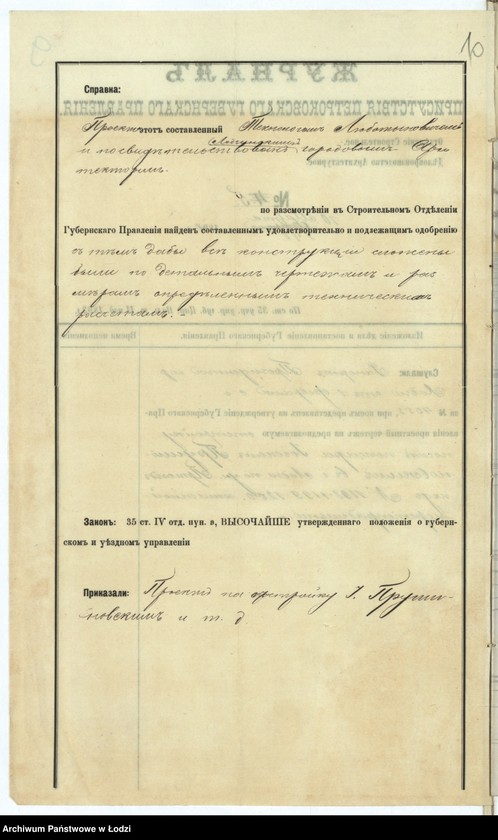 10
Справка:
Проектъ этотъ составленный Технологомъ
и по свидѣтельствованъ Лодзинскимъ городовымъ Архи
текторомъ.
по разсмотрѣніи въ Строительномъ Отдѣленіи
Губернскаго Правленія найденъ составленнымъ удовлетворительно и подлежащимъ одобренію
съ тѣмъ дабы всѣ конструкціи сложены
были по детальнымъ чертежамъ и раз
мѣрамъ опредѣленнымъ техническимъ
разсчетамъ. -
Законъ: 35 ст. IV отд. пун. а, ВЫСОЧАЙШЕ утвержденнаго положенія о губерн-
скомъ и уѣздномъ управленіи
Приказали: Проектъ на постройку І. Пруши-
новскимъ и т. д.
Archiwum Państwowe w Łodzi